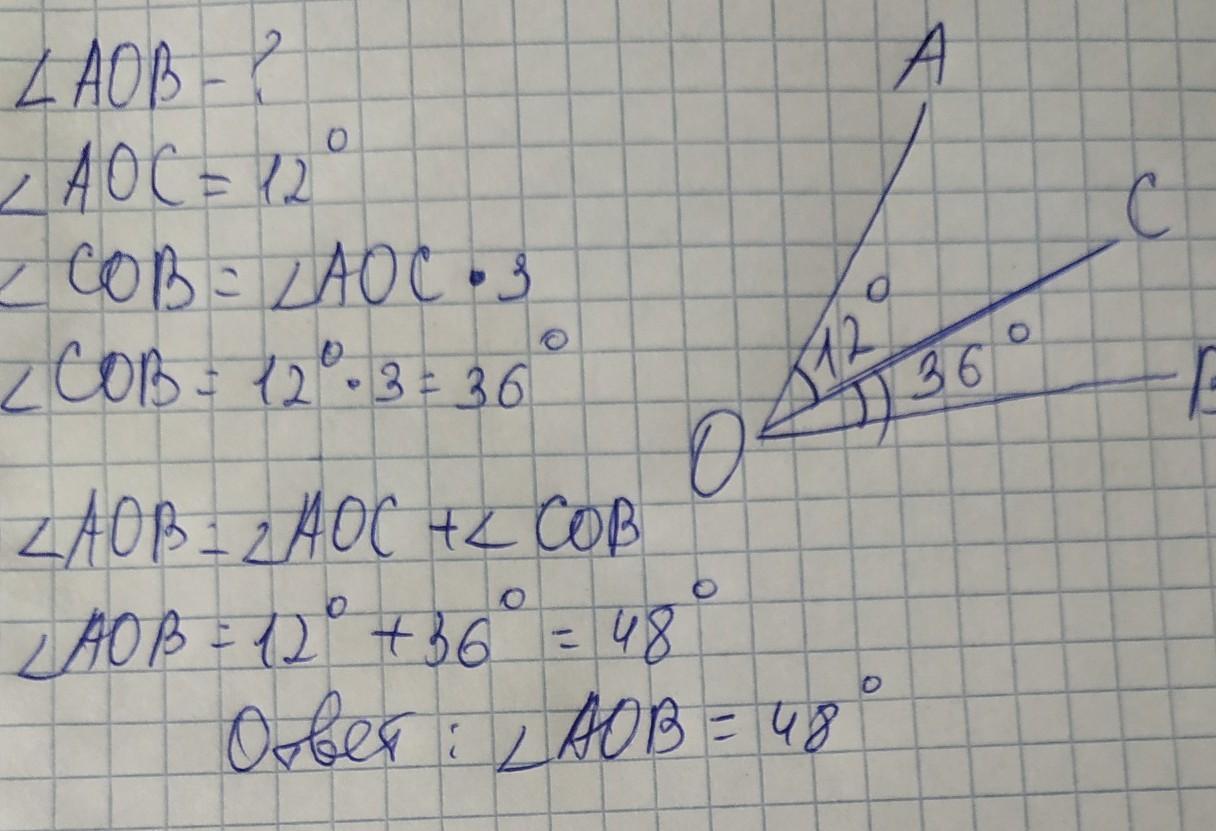 ∠AOB - ?
∠AOC = 12°
∠COB = ∠AOC · 3
∠COB = 12° · 3 = 36°
∠AOB = ∠AOC + ∠COB
∠AOB = 12° + 36° = 48°
Ответ : ∠AOB = 48°
A
C
12°
36°
B
O